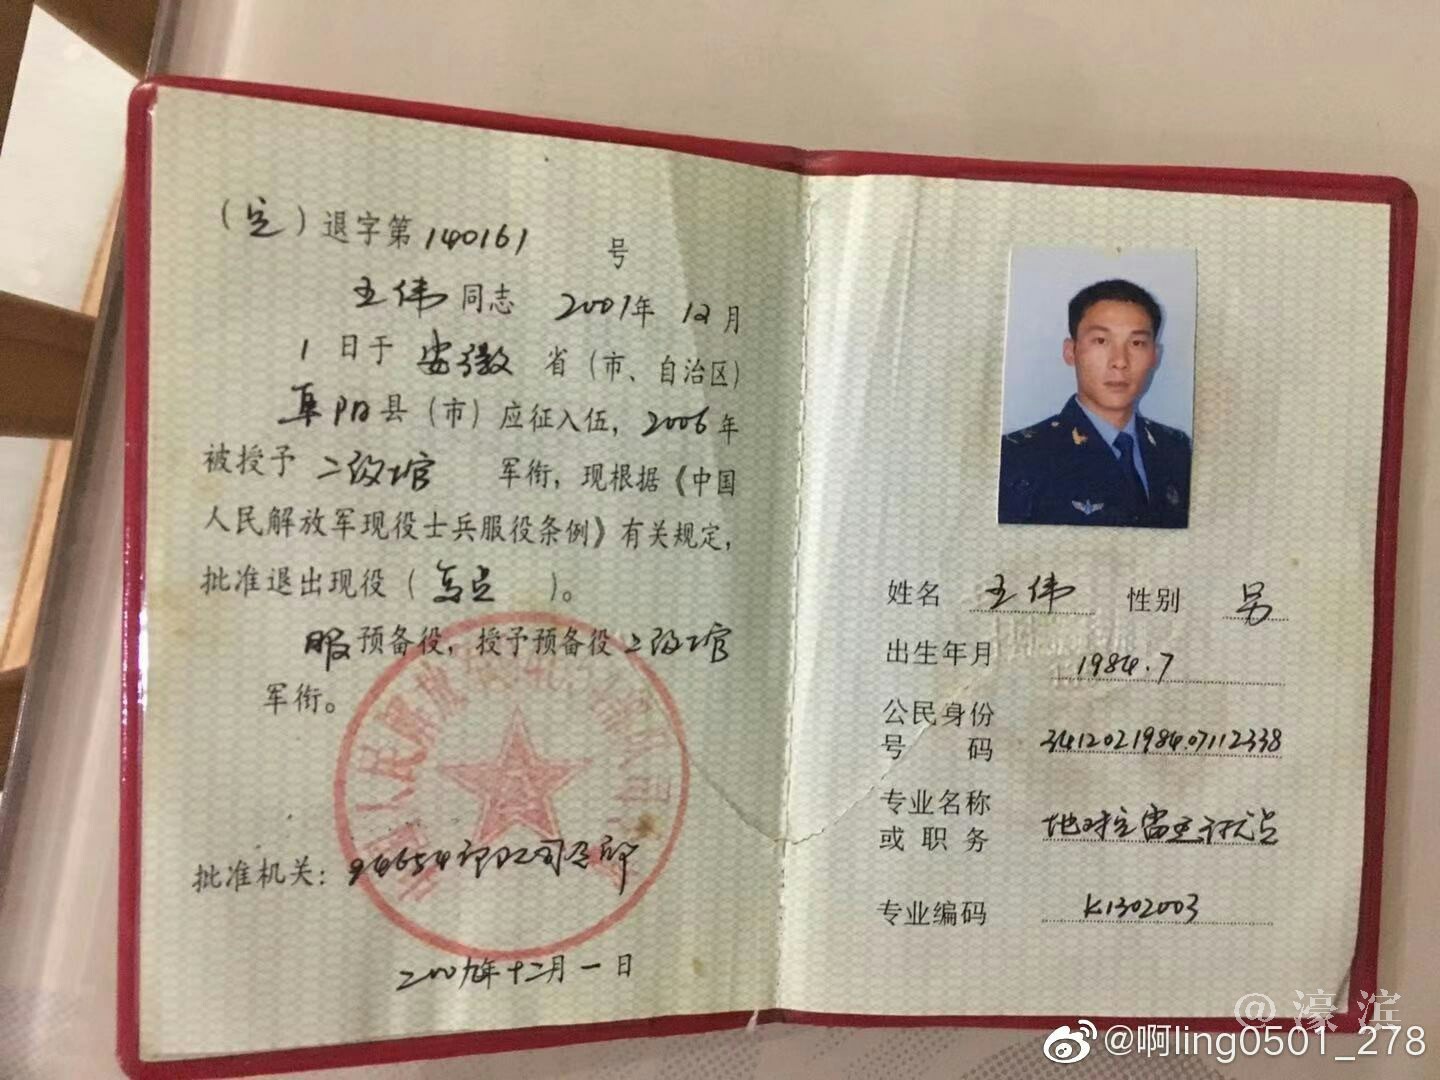 （定）退字第140161 号
王伟同志 2001年 12月
1日于 安徽 省（市、自治区）
阜阳县（市）应征入伍，2006年
被授予 二级士官 军衔，现根据《中国
人民解放军现役士兵服役条例》有关规定，
批准退出现役（ ）。
服预备役，授予预备役二级士官
军衔。
批准机关：94654部队司令部
二00九年十二月一日
姓名 王伟 性别 男
出生年月 1984.7
公民身份
号 码 341202198407112338
专业名称
或职务
专业编码 K1302003
@濠滨
@啊ling0501_278